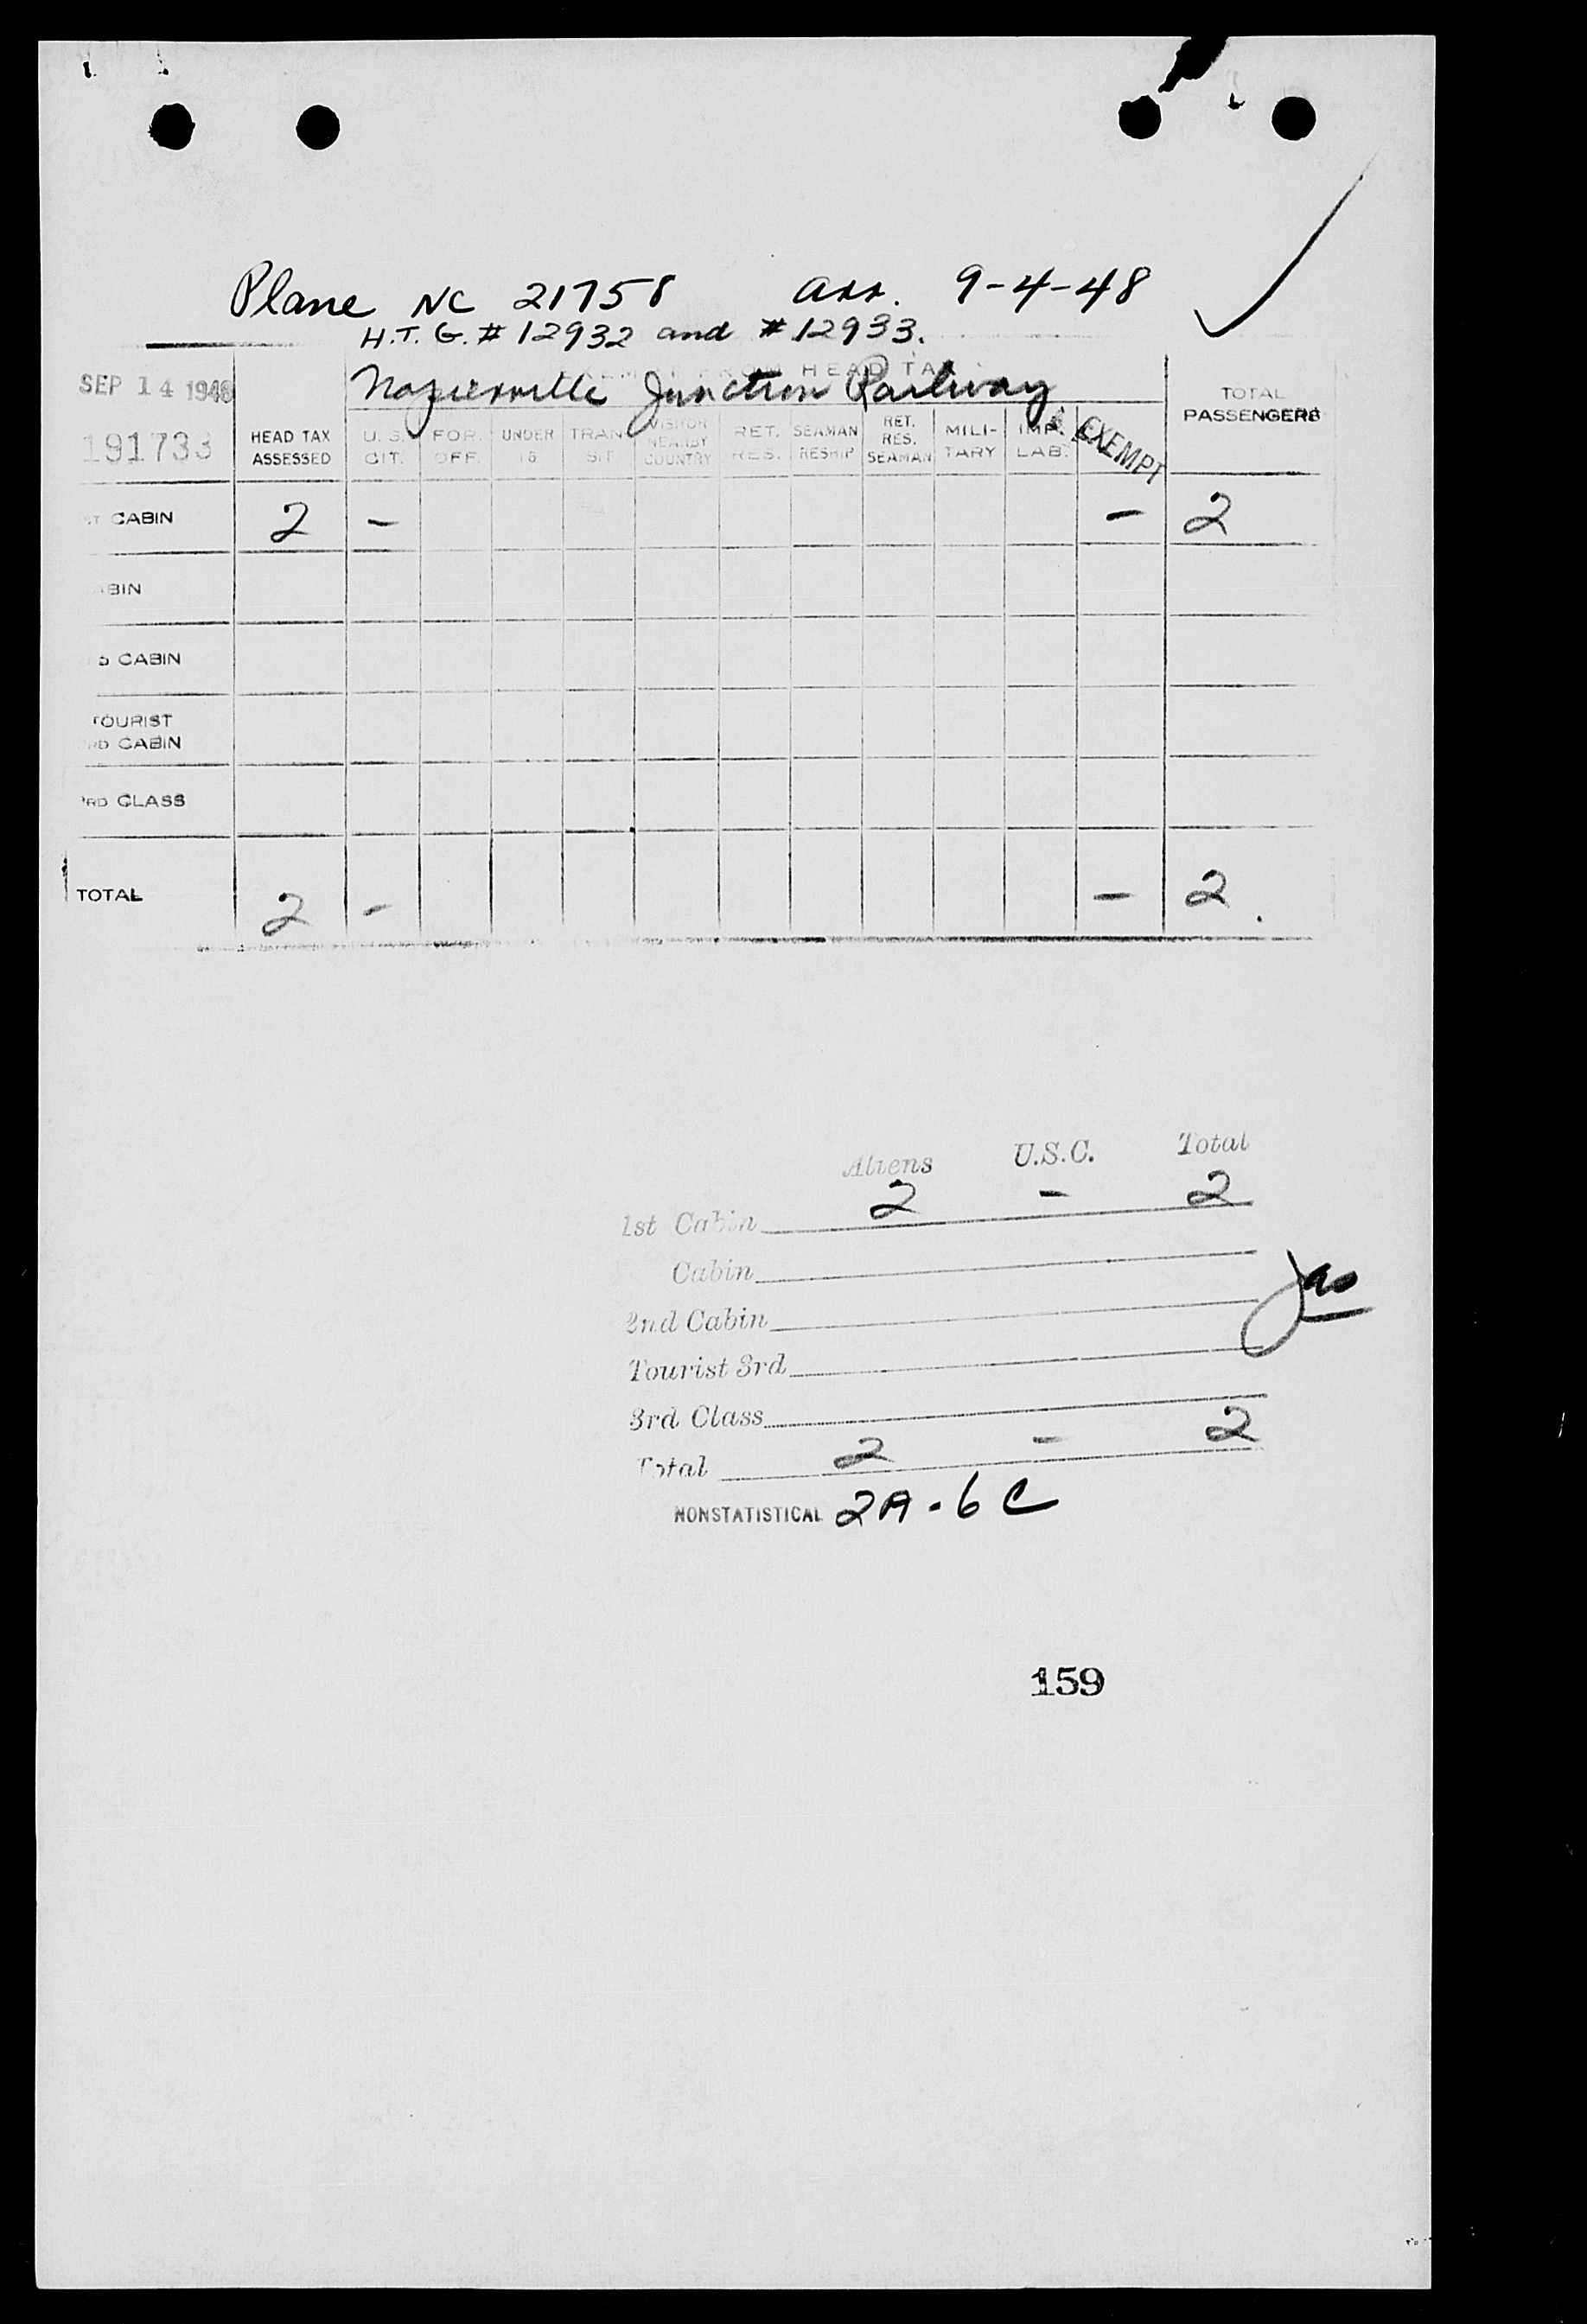 Plane NC 21758 arr. 9-4-48
H.T.G. # 12932 and # 12933.
EXEMPT FROM HEAD TAX
Napierville Junction Railway
SEP 14 1948
191733
HEAD TAX ASSESSED
U.S. CIT.
FOR. OFF.
UNDER 16
TRAN- SIT
VISITOR NEARBY COUNTRY
RET. RES.
SEAMAN RESHIP
RET. RES. SEAMAN
MILI- TARY
IMP. LAB.
EXEMPT
TOTAL PASSENGERS
ST CABIN 2 - - 2
BIN
D CABIN
TOURIST
RD CABIN
RD CLASS
TOTAL 2 - - 2
Aliens U.S.C. Total
1st Cabin 2 - 2
Cabin
2nd Cabin
Tourist 3rd
3rd Class
Total 2 - 2
NONSTATISTICAL 2A-6C
159